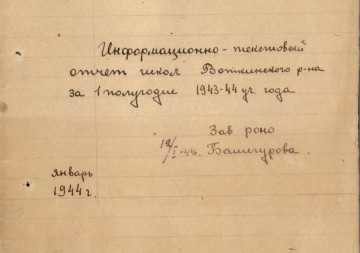 Информационно-текстовый
отчет школ Воткинского р-на
за 1 полугодие 1943-44 уч. года
Зав роно
12/I-44. Башегурова.
январь
1944 г.